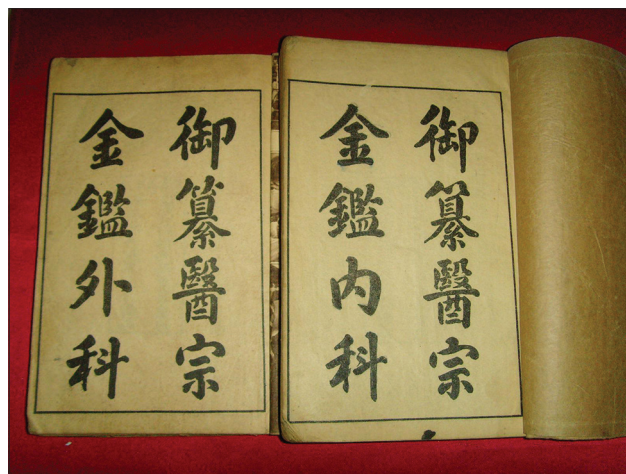 御纂醫宗
金鑑內科
御纂醫宗
金鑑外科